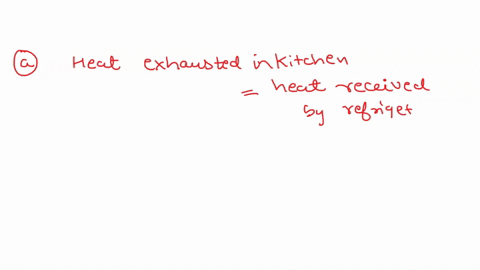 a Heat exhausted in kitchen
= heat received
by refriget